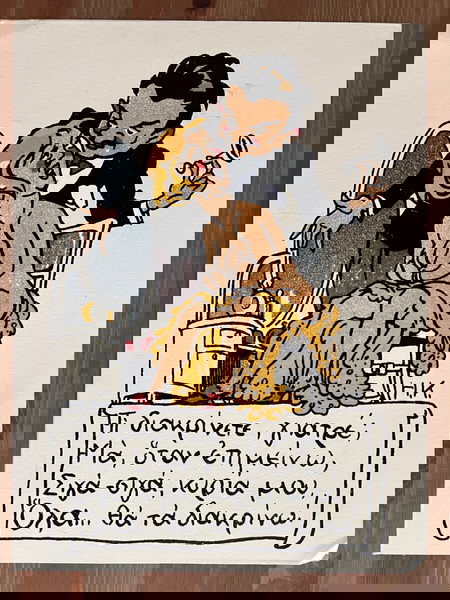 Τί διακρίνετε, γιατρέ;
Μά, ὅταν ἐπιμείνω,
Σιγά-σιγά, κυρία μου,
Ὅλα... θά τά διακρίνω.